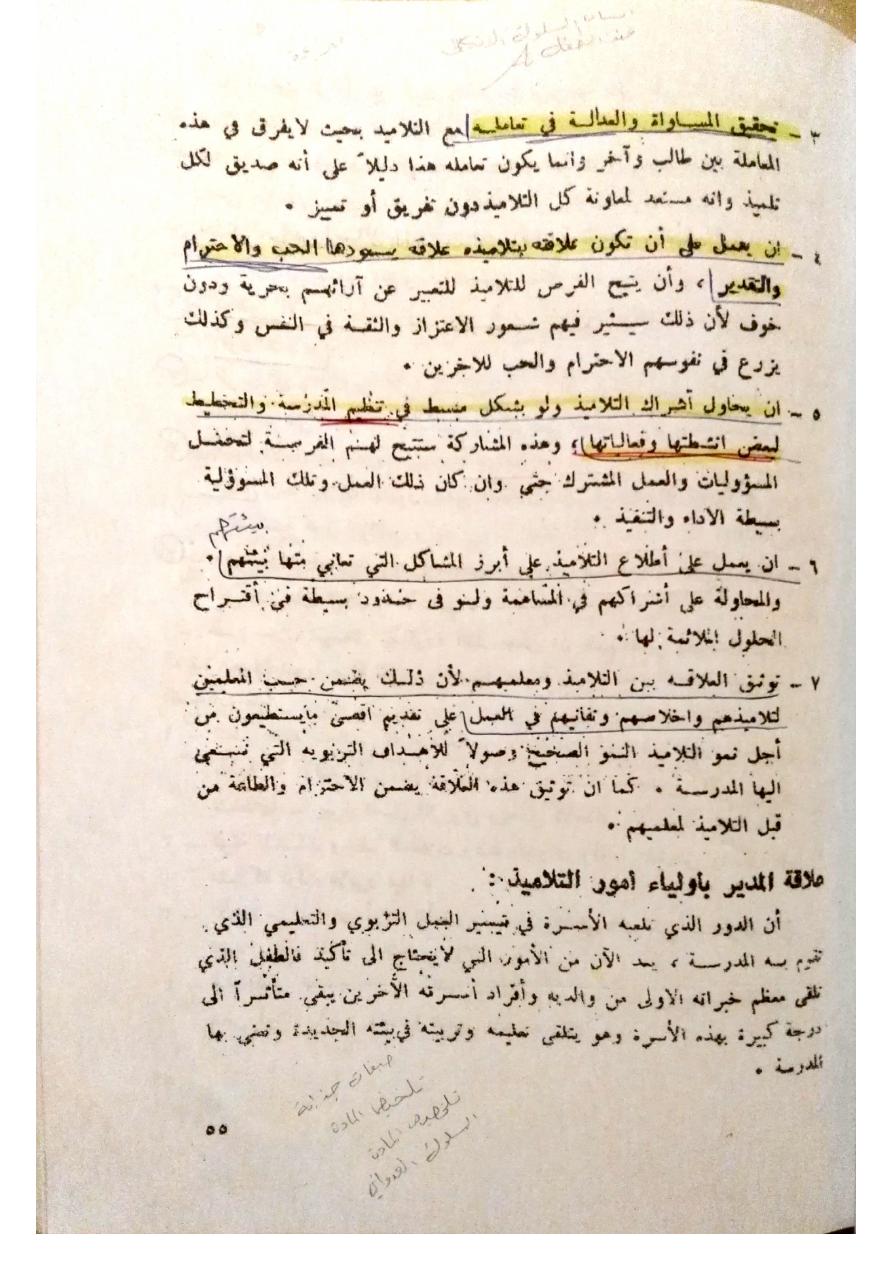 ٣ - تحقيق المساواة والعدالة في تعامله مع التلاميذ بحيث لا يفرق في هذه
المعاملة بين طالب وآخر وانما يكون تعامله هذا دليلاً على أنه صديق لكل
تلميذ وانه مستعد لمعاونة كل التلاميذ دون تفريق أو تمييز .
٤ - ان يعمل على أن تكون علاقته بتلاميذه علاقه يسودها الحب والاحترام
والتقدير ، وأن يتيح الفرص للتلاميذ للتعبير عن آرائهم بحرية ودون
خوف لأن ذلك سيثير فيهم شعور الاعتزاز والثقة في النفس وكذلك
يزرع في نفوسهم الاحترام والحب للآخرين .
٥ - ان يحاول أشراك التلاميذ ولو بشكل مبسط في تنظيم المدرسة والتخطيط
لبعض انشطتها وفعالياتها ، وهذه المشاركة ستتيح لهم الفرصة لتحمل
المسؤوليات والعمل المشترك حتى وان كان ذلك العمل وتلك المسوؤلية
بسيطة الاداء والتنفيذ .
بيئتهم
٦ - ان يعمل على أطلاع التلاميذ على أبرز المشاكل التي تعاني منها بيئتهم .
والمحاولة على أشراكهم في المساهمة ولو في حدود بسيطة في أقتراح
الحلول الملائمة لها .
٧ - توثق العلاقه بين التلاميذ ومعلميهم لأن ذلك يضمن حب المعلمين
لتلاميذهم واخلاصهم وتفانيهم في العمل على تقديم اقصى مايستطيعون من
أجل نمو التلاميذ النمو الصحيح وصولاً للأهداف التربويه التي تسعى
اليها المدرسة . كما ان توثيق هذه العلاقة يضمن الاحترام والطاعة من
قبل التلاميذ لمعلميهم .
علاقة المدير بأولياء أمور التلاميذ :
أن الدور الذي تلعبه الأسرة في تيسير العمل التربوي والتعليمي الذي
تقوم به المدرسة ، يعد الآن من الأمور التي لا يحتاج الى تأكيد فالطفل الذي
تلقى معظم خبراته الاولى من والديه وأفراد أسرته الآخرين يبقى متأثراً الى
درجة كبيرة بهذه الأسرة وهو يتلقى تعليمه وتربيته في بيئته الجديدة ونعني بها
المدرسة .
تلخيص المادة
تلخيص المادة
السلوك العدواني
٥٥